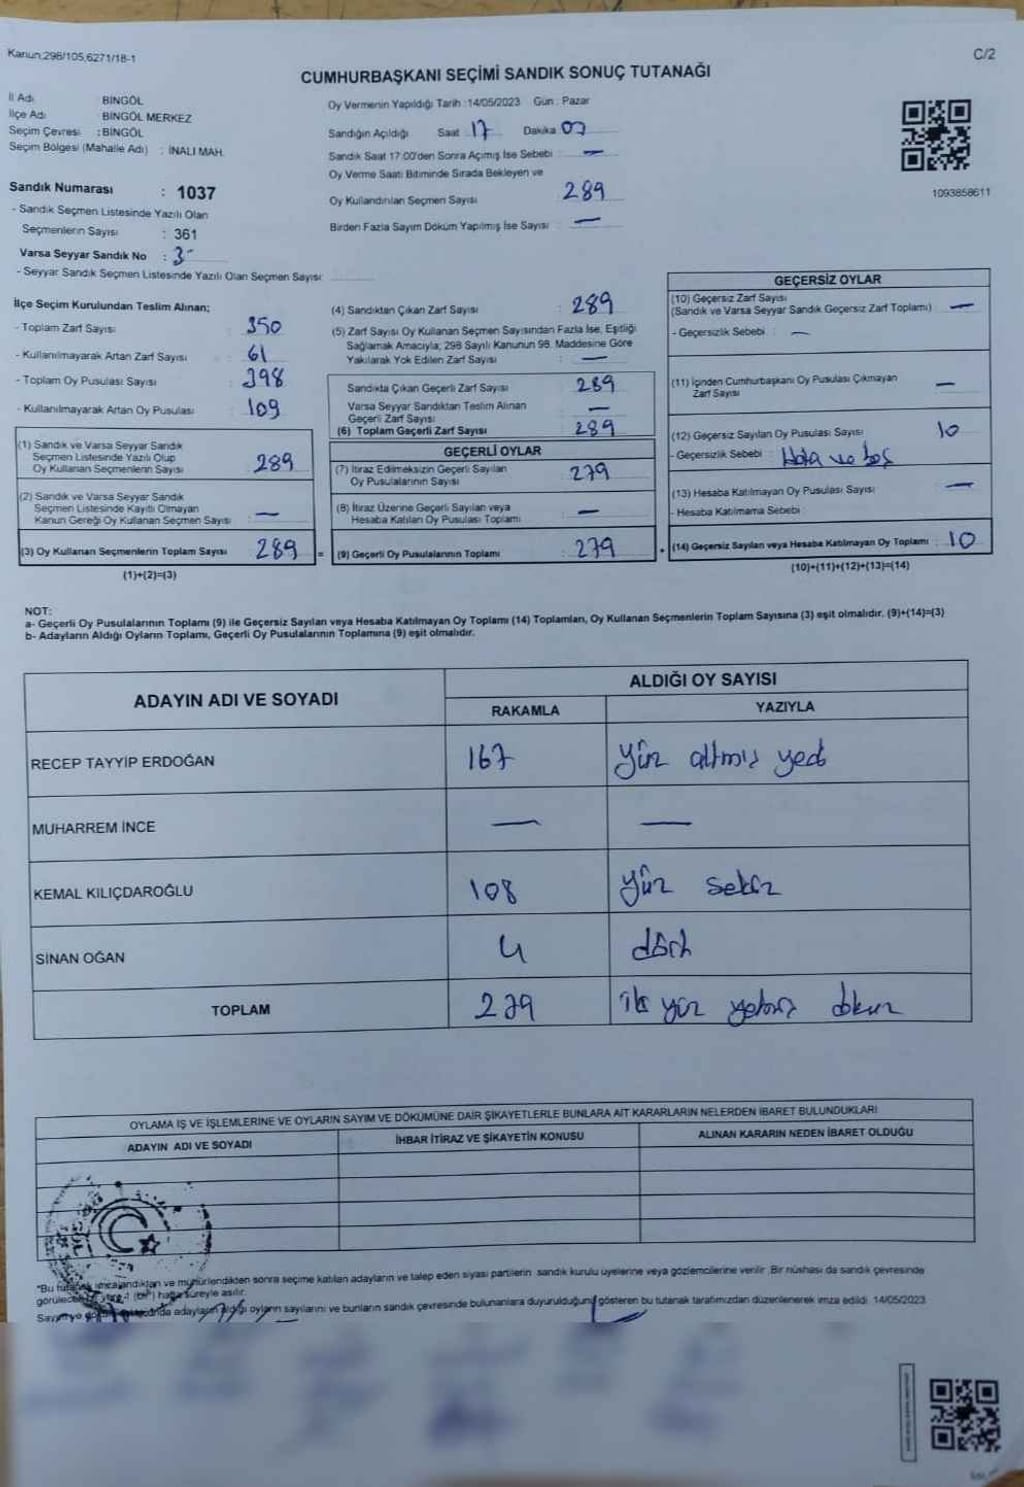 Kanun;298/105,6271/18-1
C/2
CUMHURBAŞKANI SEÇİMİ SANDIK SONUÇ TUTANAĞI
İl Adı BİNGÖL
İlçe Adı BİNGÖL MERKEZ
Seçim Çevresi : BİNGÖL
Seçim Bölgesi (Mahalle Adı) : İNALI MAH.
Sandık Numarası : 1037
- Sandık Seçmen Listesinde Yazılı Olan
Seçmenlerin Sayısı : 361
Varsa Seyyar Sandık No :
- Seyyar Sandık Seçmen Listesinde Yazılı Olan Seçmen Sayısı:
Oy Vermenin Yapıldığı Tarih :14/05/2023 Gün : Pazar
Sandığın Açıldığı Saat 17 Dakika 00
Sandık Saat 17:00'den Sonra Açımış İse Sebebi : —
Oy Verme Saati Bitiminde Sırada Bekleyen ve
Oy Kullandırılan Seçmen Sayısı : 289
Birden Fazla Sayım Döküm Yapılmış İse Sayısı : —
1093858611
İlçe Seçim Kurulundan Teslim Alınan;
- Toplam Zarf Sayısı : 350
- Kullanılmayarak Artan Zarf Sayısı : 61
- Toplam Oy Pusulası Sayısı : 398
- Kullanılmayarak Artan Oy Pusulası : 109
(1) Sandık ve Varsa Seyyar Sandık
Seçmen Listesinde Yazılı Olup
Oy Kullanan Seçmenlerin Sayısı : 289
(2) Sandık ve Varsa Seyyar Sandık
Seçmen Listesinde Kayıtlı Olmayan
Kanun Gereği Oy Kullanan Seçmen Sayısı : —
(3) Oy Kullanan Seçmenlerin Toplam Sayısı 289 =
(1)+(2)=(3)
(4) Sandıktan Çıkan Zarf Sayısı : 289
(5) Zarf Sayısı Oy Kullanan Seçmen Sayısından Fazla İse, Eşitliği
Sağlamak Amacıyla; 298 Sayılı Kanunun 98. Maddesine Göre
Yakılarak Yok Edilen Zarf Sayısı : —
Sandıkta Çıkan Geçerli Zarf Sayısı : 289
Varsa Seyyar Sandıktan Teslim Alınan
Geçerli Zarf Sayısı : —
(6) Toplam Geçerli Zarf Sayısı : 289
GEÇERLİ OYLAR
(7) İtiraz Edilmeksizin Geçerli Sayılan
Oy Pusulalarının Sayısı : 279
(8) İtiraz Üzerine Geçerli Sayılan veya
Hesaba Katılan Oy Pusulası Toplamı : —
(9) Geçerli Oy Pusulalarının Toplamı : 279 +
GEÇERSİZ OYLAR
(10) Geçersiz Zarf Sayısı
(Sandık ve Varsa Seyyar Sandık Geçersiz Zarf Toplamı) : —
- Geçersizlik Sebebi : —
(11) İçinden Cumhurbaşkanı Oy Pusulası Çıkmayan
Zarf Sayısı : —
(12) Geçersiz Sayılan Oy Pusulası Sayısı : 10
- Geçersizlik Sebebi : Hata ve boş
(13) Hesaba Katılmayan Oy Pusulası Sayısı : —
- Hesaba Katılmama Sebebi
(14) Geçersiz Sayılan veya Hesaba Katılmayan Oy Toplamı : 10
(10)+(11)+(12)+(13)=(14)
NOT:
a- Geçerli Oy Pusulalarının Toplamı (9) ile Geçersiz Sayılan veya Hesaba Katılmayan Oy Toplamı (14) Toplamları, Oy Kullanan Seçmenlerin Toplam Sayısına (3) eşit olmalıdır. (9)+(14)=(3)
b- Adayların Aldığı Oyların Toplamı, Geçerli Oy Pusulalarının Toplamına (9) eşit olmalıdır.
ADAYIN ADI VE SOYADI
ALDIĞI OY SAYISI
RAKAMLA YAZIYLA
RECEP TAYYİP ERDOĞAN 167 yüz altmış yedi
MUHARREM İNCE — —
KEMAL KILIÇDAROĞLU 108 yüz sekiz
SİNAN OĞAN 4 dört
TOPLAM 279 iki yüz yetmiş dokuz
OYLAMA İŞ VE İŞLEMLERİNE VE OYLARIN SAYIM VE DÖKÜMÜNE DAİR ŞİKAYETLERLE BUNLARA AİT KARARLARIN NELERDEN İBARET BULUNDUKLARI
ADAYIN ADI VE SOYADI İHBAR İTİRAZ VE ŞİKAYETİN KONUSU ALINAN KARARIN NEDEN İBARET OLDUĞU
"Bu tutanak imzalandıktan ve mühürlendikten sonra seçime katılan adayların ve talep eden siyasi partilerin sandık kurulu üyelerine veya gözlemcilerine verilir. Bir nüshası da sandık çevresinde
görülecek bir yere 1 (bir) hafta süreyle asılır.
Sayım ve döküm adayların aldığı oyların sayılarını ve bunların sandık çevresinde bulunanlara duyurulduğunu gösteren bu tutanak tarafımızdan düzenlenerek imza edildi. 14/05/2023